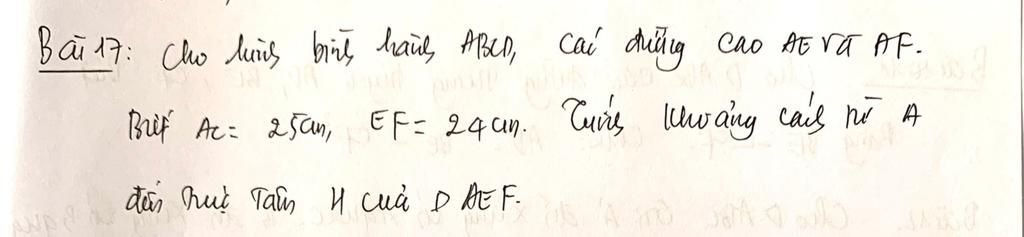 Bài 17: Cho hình bình hành ABCD, các đường cao AE và AF.
Biết AC = 25cm, EF = 24cm. Tính khoảng cách từ A
đến trực tâm H của Δ AEF.